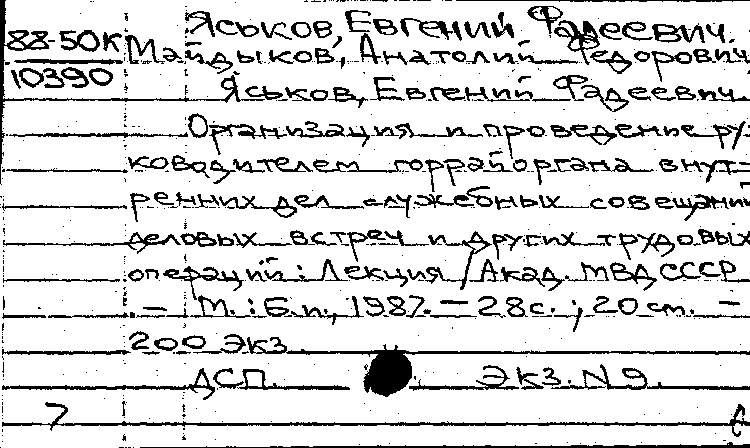 Яськов, Евгений Фадеевич.
88-50К Майдыков, Анатолий Федорович
10390
Яськов, Евгений Фадеевич
Организация и проведение ру-
ководителем горрайоргана внут-
ренних дел служебных совещаний
деловых встреч и других трудовых
операций : Лекция / Акад. МВД СССР
. — М. : Б.и., 1987. — 28 с. ; 20 см. —
200 экз.
ДСП. Экз. N 9.